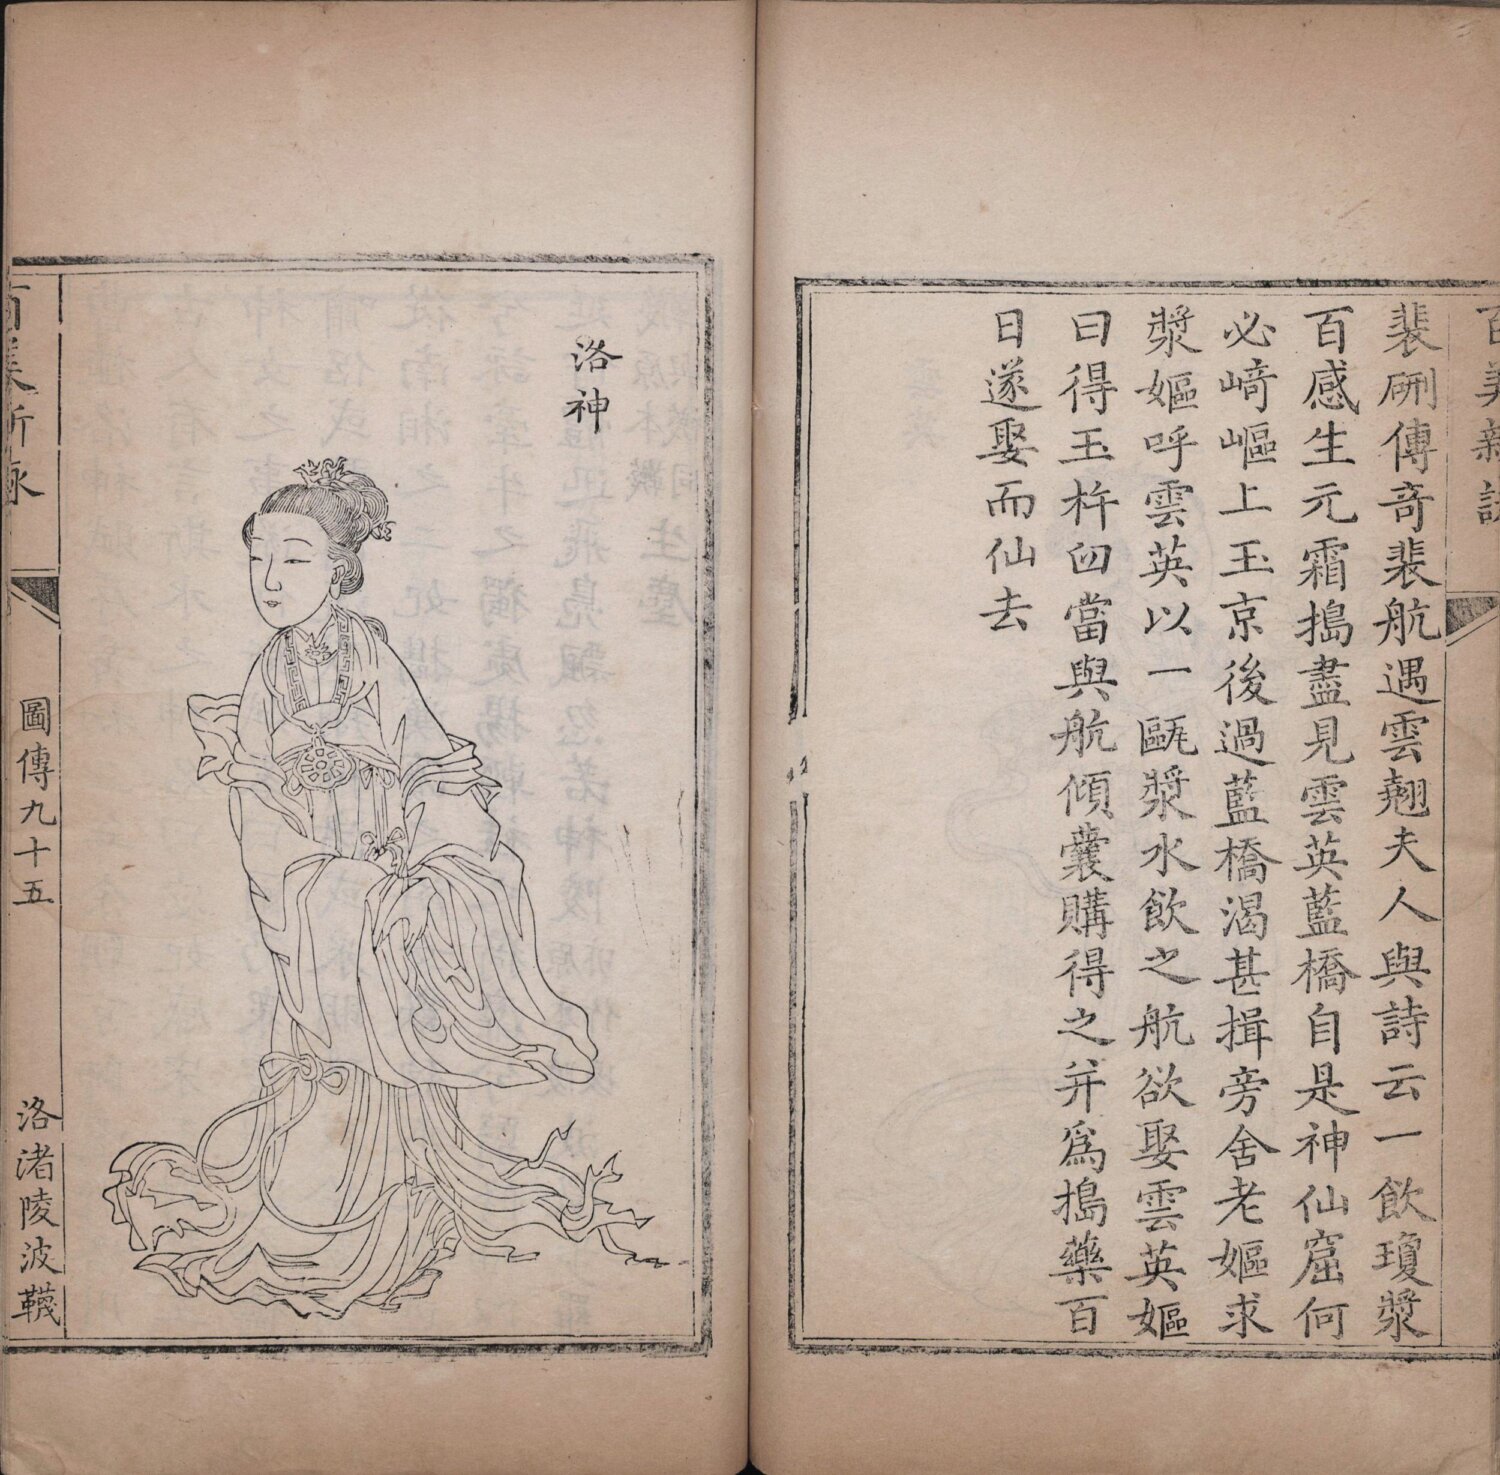 百美新詠
裴硎傳奇裴航遇雲翹夫人與詩云一飲瓊漿
百感生元霜搗盡見雲英藍橋自是神仙窟何
必﨑嶇上玉京後過藍橋渴甚揖旁舍老嫗求
漿嫗呼雲英以一甌漿水飲之航欲娶雲英嫗
曰得玉杵臼當與航傾囊購得之并爲搗藥百
日遂娶而仙去
洛神
百美新詠
圖傳九十五
洛渚陵波襪